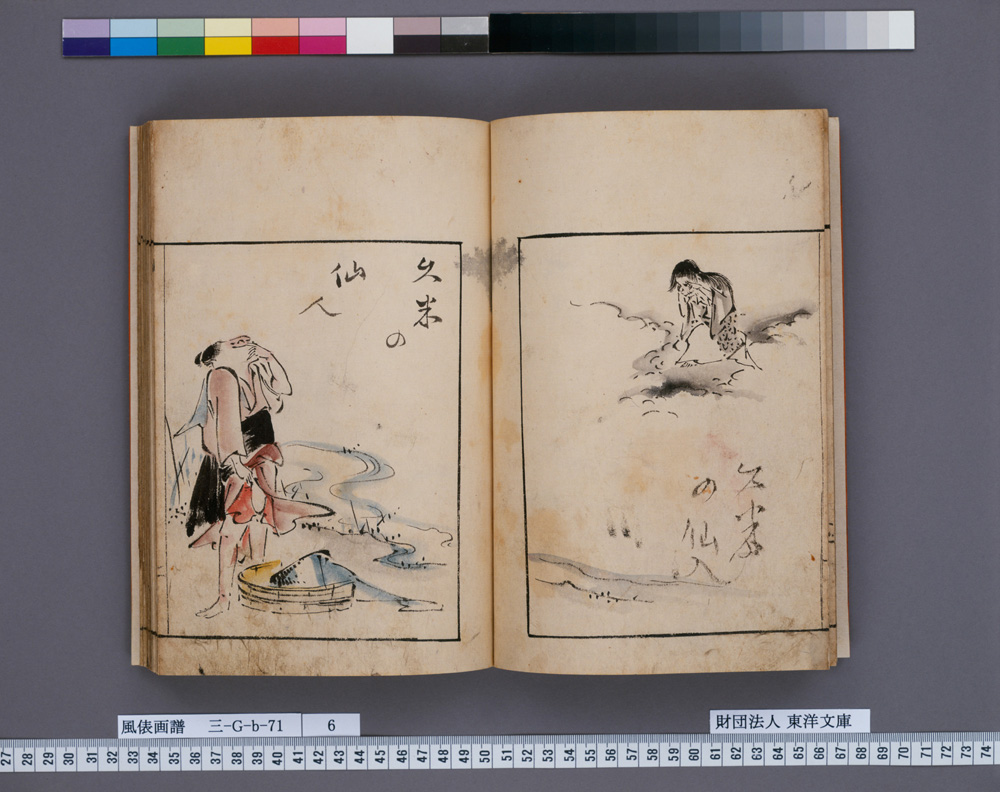 久米
の
仙
人
久米
の仙人
風俵画譜 三-G-b-71 6
財団法人 東洋文庫
27 28 29 30 31 32 33 34 35 36 37 38 39 40 41 42 43 44 45 46 47 48 49 50 51 52 53 54 55 56 57 58 59 60 61 62 63 64 65 66 67 68 69 70 71 72 73 74